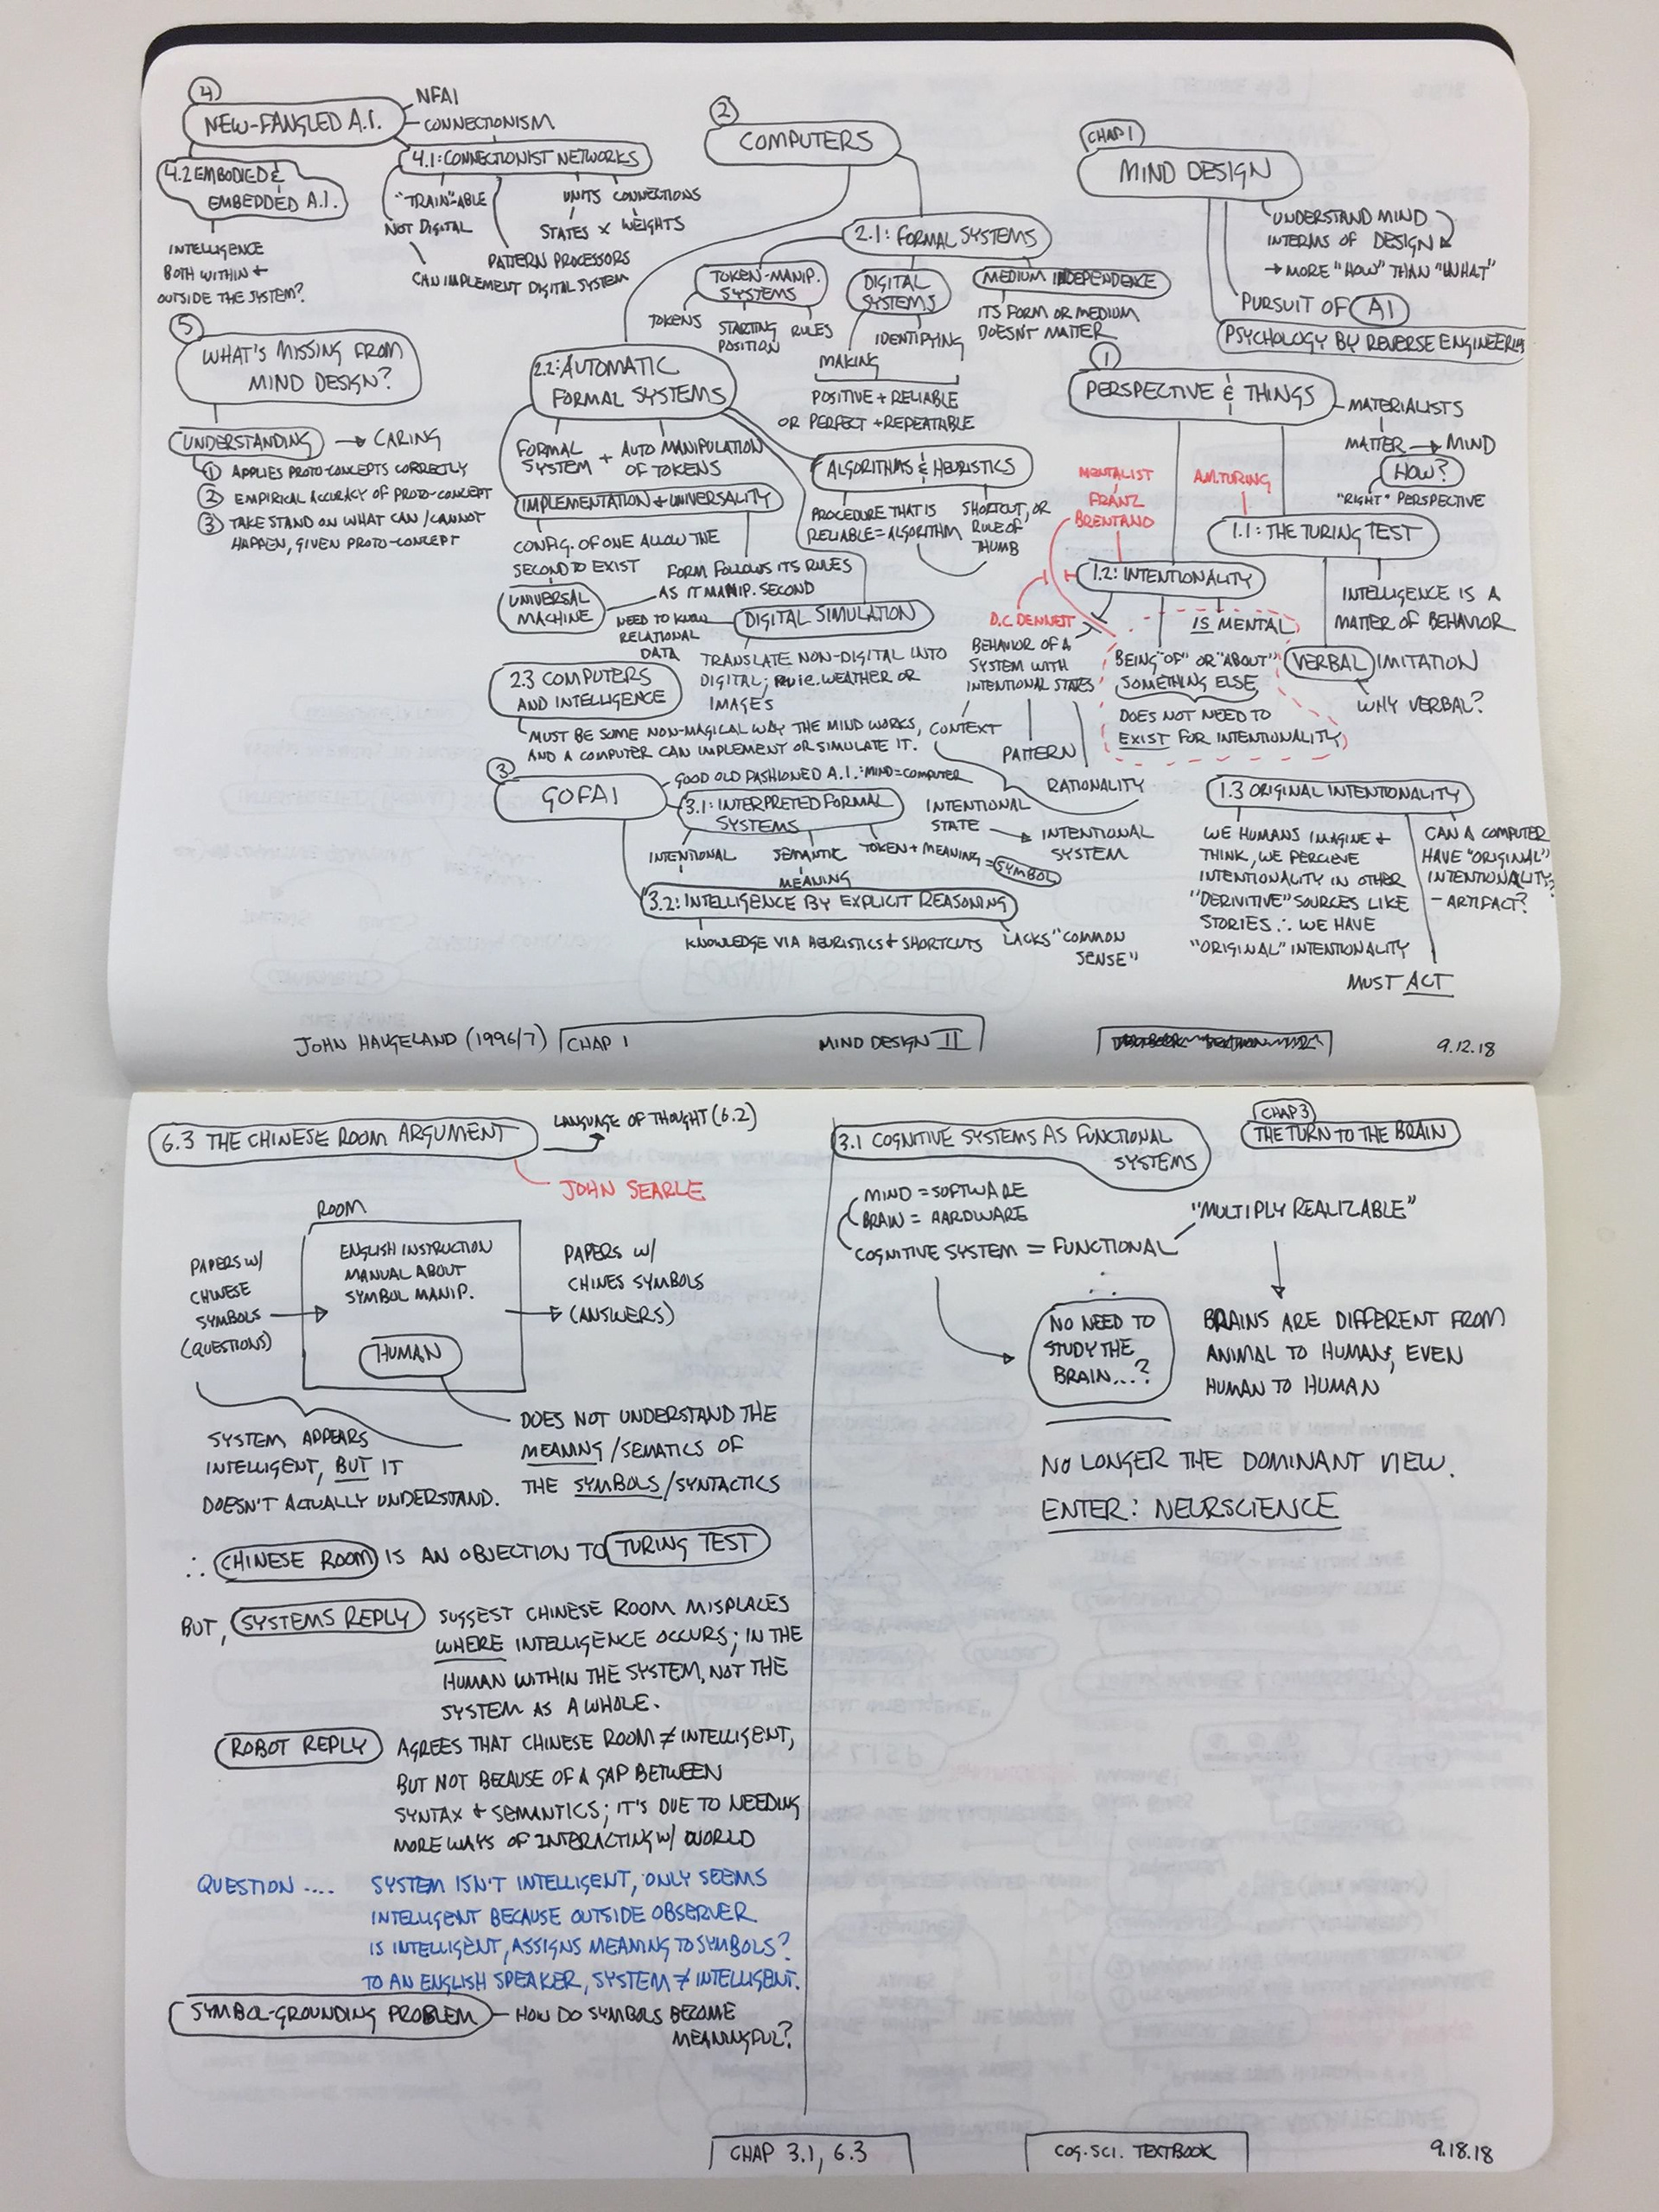 CHAP 1
MIND DESIGN
UNDERSTAND MIND
IN TERMS OF DESIGN
→ MORE "HOW" THAN "WHAT"
PURSUIT OF AI
PSYCHOLOGY BY REVERSE ENGINEERING
1
PERSPECTIVE & THINGS
MATERIALISTS
MATTER → MIND
HOW?
"RIGHT" PERSPECTIVE
A.M. TURING
1.1: THE TURING TEST
INTELLIGENCE IS A
MATTER OF BEHAVIOR
VERBAL IMITATION
WHY VERBAL?
MENTALIST
FRANZ
BRENTANO
1.2: INTENTIONALITY
D.C. DENNETT
IS MENTAL
BEING "OF" OR "ABOUT"
SOMETHING ELSE
DOES NOT NEED TO
EXIST FOR INTENTIONALITY
BEHAVIOR OF A
SYSTEM WITH
INTENTIONAL STATES
CONTEXT
PATTERN
RATIONALITY
INTENTIONAL
STATE → INTENTIONAL
SYSTEM
1.3 ORIGINAL INTENTIONALITY
WE HUMANS IMAGINE +
THINK, WE PERCIEVE
INTENTIONALITY IN OTHER
"DERIVITIVE" SOURCES LIKE
STORIES ∴ WE HAVE
"ORIGINAL" INTENTIONALITY
CAN A COMPUTER
HAVE "ORIGINAL"
INTENTIONALITY?
- ARTIFACT?
MUST ACT
2
COMPUTERS
2.1: FORMAL SYSTEMS
TOKEN-MANIP.
SYSTEMS
TOKENS
STARTING
POSITION
RULES
DIGITAL
SYSTEMS
MAKING
IDENTIFYING
POSITIVE + RELIABLE
OR PERFECT + REPEATABLE
MEDIUM INDEPENDENCE
ITS FORM OR MEDIUM
DOESN'T MATTER
2.2: AUTOMATIC
FORMAL SYSTEMS
FORMAL
SYSTEM + AUTO MANIPULATION
OF TOKENS
ALGORITHMS & HEURISTICS
PROCEDURE THAT IS
RELIABLE = ALGORITHM
SHORTCUT, OR
RULE OF
THUMB
IMPLEMENTATION + UNIVERSALITY
CONFIG. OF ONE ALLOW THE
SECOND TO EXIST
FORM FOLLOWS ITS RULES
AS IT MANIP. SECOND
UNIVERSAL
MACHINE
NEED TO KNOW
RELATIONAL
DATA
DIGITAL SIMULATION
TRANSLATE NON-DIGITAL INTO
DIGITAL; i.e. WEATHER OR
IMAGES
2.3 COMPUTERS
AND INTELLIGENCE
MUST BE SOME NON-MAGICAL WAY THE MIND WORKS,
AND A COMPUTER CAN IMPLEMENT OR SIMULATE IT.
3
GOFAI
GOOD OLD FASHIONED A.I.: MIND = COMPUTER
3.1: INTERPRETED FORMAL
SYSTEMS
INTENTIONAL
SEMANTIC
MEANING
TOKEN + MEANING = SYMBOL
3.2: INTELLIGENCE BY EXPLICIT REASONING
KNOWLEDGE VIA HEURISTICS + SHORTCUTS
LACKS "COMMON
SENSE"
4
NEW-FANGLED A.I.
NFAI
CONNECTIONISM
4.1: CONNECTIONIST NETWORKS
"TRAIN"-ABLE
NOT DIGITAL
CAN IMPLEMENT DIGITAL SYSTEM
PATTERN PROCESSORS
UNITS CONNECTIONS
STATES × WEIGHTS
4.2 EMBODIED &
EMBEDDED A.I.
INTELLIGENCE
BOTH WITHIN +
OUTSIDE THE SYSTEM?
5
WHAT'S MISSING FROM
MIND DESIGN?
UNDERSTANDING → CARING
1 APPLIES PROTO-CONCEPTS CORRECTLY
2 EMPIRICAL ACCURACY OF PROTO-CONCEPT
3 TAKE STAND ON WHAT CAN/CANNOT
HAPPEN, GIVEN PROTO-CONCEPT
JOHN HAUGELAND (1996/7) CHAP 1 MIND DESIGN II
9.12.18
6.3 THE CHINESE ROOM ARGUMENT
LANGUAGE OF THOUGHT (6.2)
JOHN SEARLE
ROOM
PAPERS W/
CHINESE
SYMBOLS
(QUESTIONS)
ENGLISH INSTRUCTION
MANUAL ABOUT
SYMBOL MANIP.
HUMAN
PAPERS W/
CHINES SYMBOLS
(ANSWERS)
SYSTEM APPEARS
INTELLIGENT, BUT IT
DOESN'T ACTUALLY UNDERSTAND.
DOES NOT UNDERSTAND THE
MEANING/SEMATICS OF
THE SYMBOLS/SYNTACTICS
∴ CHINESE ROOM IS AN OBJECTION TO TURING TEST
BUT, SYSTEMS REPLY SUGGEST CHINESE ROOM MISPLACES
WHERE INTELLIGENCE OCCURS; IN THE
HUMAN WITHIN THE SYSTEM, NOT THE
SYSTEM AS A WHOLE.
ROBOT REPLY AGREES THAT CHINESE ROOM ≠ INTELLIGENT,
BUT NOT BECAUSE OF A GAP BETWEEN
SYNTAX + SEMANTICS; IT'S DUE TO NEEDING
MORE WAYS OF INTERACTING W/ WORLD
QUESTION .... SYSTEM ISN'T INTELLIGENT, ONLY SEEMS
INTELLIGENT BECAUSE OUTSIDE OBSERVER
IS INTELLIGENT, ASSIGNS MEANING TO SYMBOLS?
TO AN ENGLISH SPEAKER, SYSTEM ≠ INTELLIGENT.
SYMBOL-GROUNDING PROBLEM - HOW DO SYMBOLS BECOME
MEANINGFUL?
CHAP 3
THE TURN TO THE BRAIN
3.1 COGNITIVE SYSTEMS AS FUNCTIONAL
SYSTEMS
MIND = SOFTWARE
BRAIN = HARDWARE
COGNITIVE SYSTEM = FUNCTIONAL
"MULTIPLY REALIZABLE"
∴
NO NEED TO
STUDY THE
BRAIN...?
BRAINS ARE DIFFERENT FROM
ANIMAL TO HUMAN, EVEN
HUMAN TO HUMAN
NO LONGER THE DOMINANT VIEW.
ENTER: NEURSCIENCE
CHAP 3.1, 6.3
COG. SCI. TEXTBOOK
9.18.18